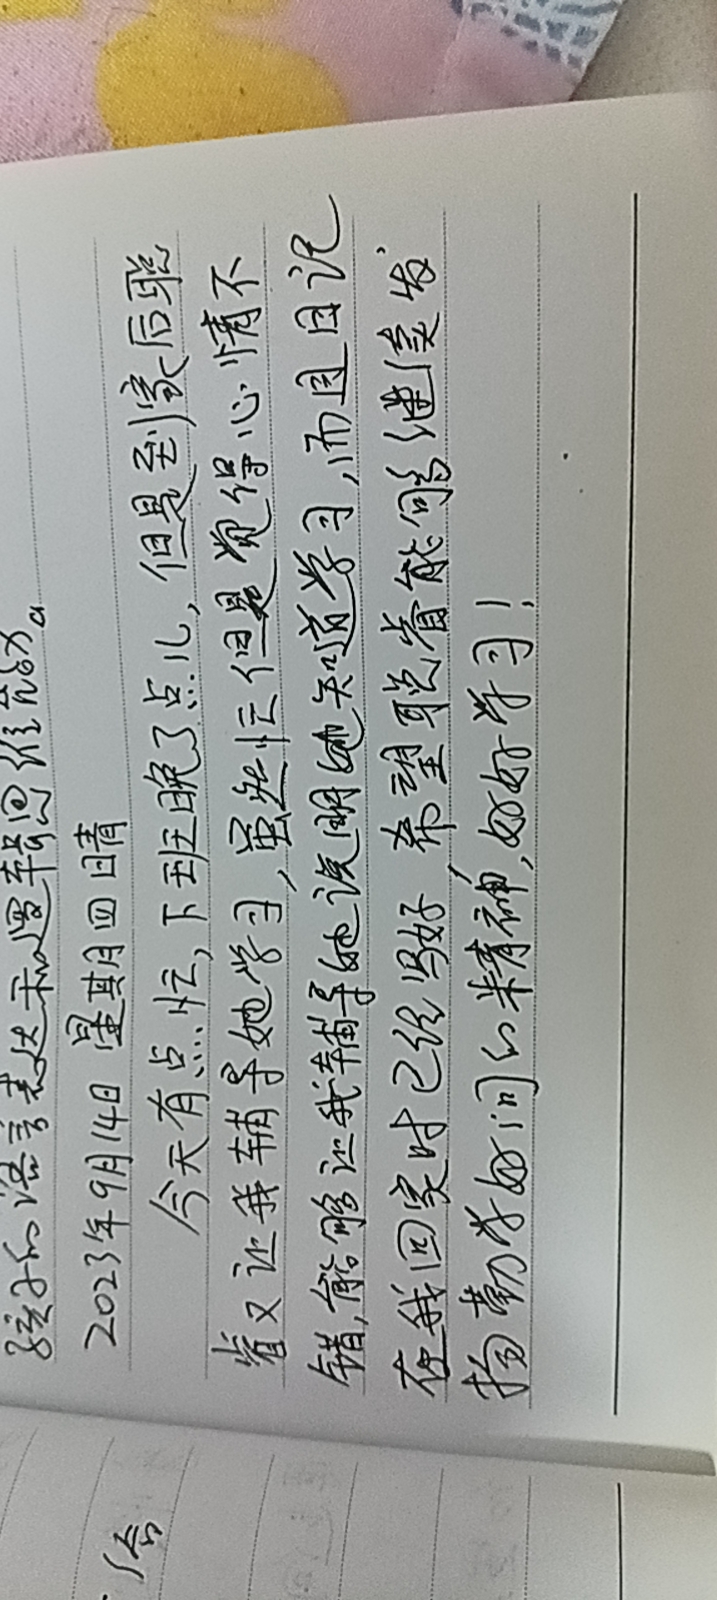 孩子的语言表达和逻辑思维能力。
2023年9月14日 星期四 晴
今天有点忙,下班晚了点儿,但是到家后聪
睿又让我辅导她学习,虽然忙但是觉得心情不
错,能够让我辅导她说明她知道学习,而且日记
在我回家时已经写好,希望聪睿能够继续发
扬勤学好问的精神,好好学习!